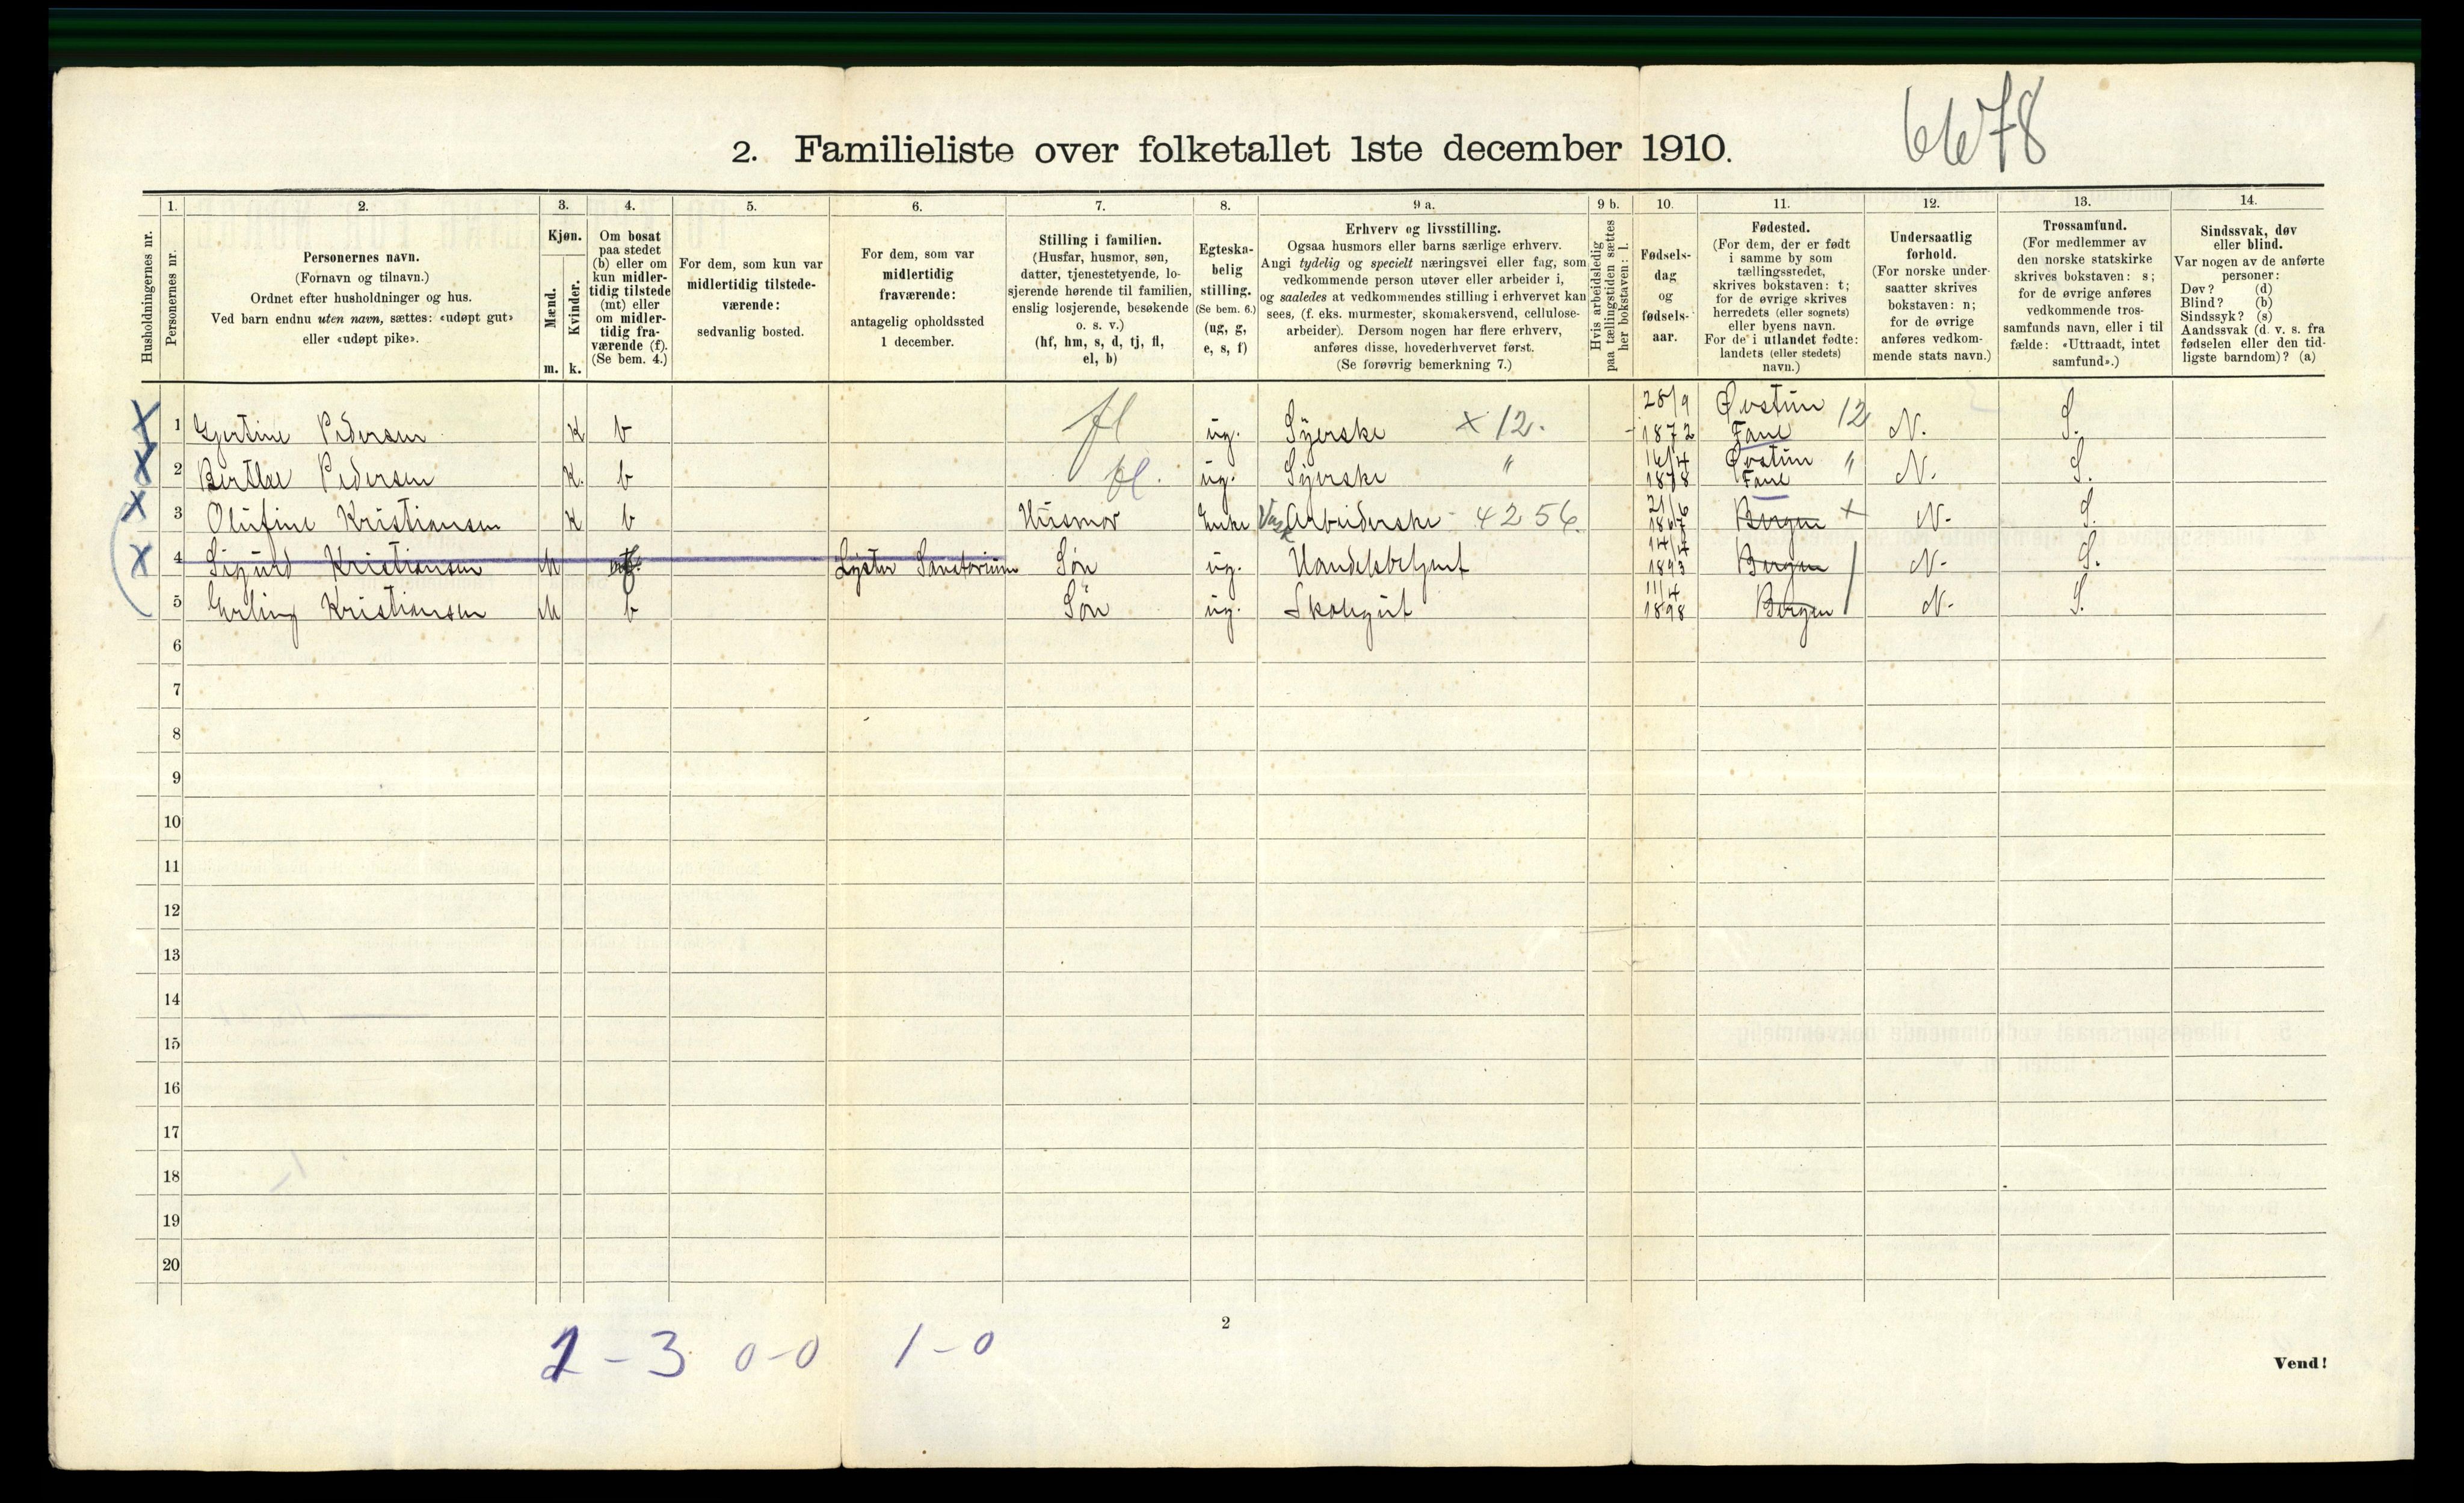 6678
2. Familieliste over folketallet 1ste december 1910.
1. 2. 3. 4. 5. 6. 7. 8. 9 a. 9 b. 10. 11. 12. 13. 14.
Husholdningernes nr.
Personernes nr.
Personernes navn.
(Fornavn og tilnavn.)
Ordnet efter husholdninger og hus.
Ved barn endnu uten navn, sættes: «udøpt gut»
eller «udøpt pike».
Kjøn.
Mænd.
Kvinder.
m. k.
Om bosat
paa stedet
(b) eller om
kun midler-
tidig tilstede
(mt) eller
om midler-
tidig fra-
værende (f).
(Se bem. 4.)
For dem, som kun var
midlertidig tilstede-
værende:
sedvanlig bosted.
For dem, som var
midlertidig
fraværende:
antagelig opholdssted
1 december.
Stilling i familien.
(Husfar, husmor, søn,
datter, tjenestetyende, lo-
sjerende hørende til familien,
enslig losjerende, besøkende
o. s. v.)
(hf, hm, s, d, tj, fl,
el, b)
Egteska-
belig
stilling.
(Se bem. 6.)
(ug, g,
e, s, f)
Erhverv og livsstilling.
Ogsaa husmors eller barns særlige erhverv.
Angi tydelig og specielt næringsvei eller fag, som
vedkommende person utøver eller arbeider i,
og saaledes at vedkommendes stilling i erhvervet kan
sees, (f. eks. murmester, skomakersvend, cellulose-
arbeider). Dersom nogen har flere erhverv,
anføres disse, hovederhvervet først.
(Se forøvrig bemerkning 7.)
Hvis arbeidsledig
paa tællingstiden sættes
her bokstaven: l.
Fødsels-
dag
og
fødsels-
aar.
Fødested.
(For dem, der er født
i samme by som
tællingsstedet,
skrives bokstaven: t;
for de øvrige skrives
herredets (eller sognets)
eller byens navn.
For de i utlandet fødte:
landets (eller stedets)
navn.)
Undersaatlig
forhold.
(For norske under-
saatter skrives
bokstaven: n;
for de øvrige
anføres vedkom-
mende stats navn.)
Trossamfund.
(For medlemmer av
den norske statskirke
skrives bokstaven: s;
for de øvrige anføres
vedkommende tros-
samfunds navn, eller i til
fælde: «Uttraadt, intet
samfund».)
Sindssvak, døv
eller blind.
Var nogen av de anførte
personer:
Døv? (d)
Blind? (b)
Sindssyk? (s)
Aandssvak (d. v. s. fra
fødselen eller den tid-
ligste barndom)? (a)
X 1 Gjertine Pedersen K b fl ug. Syerske x 12. 1872 Øvstun Fane 12 N. S.
X 2 Berthe Pedersen K. b fl. ug. Syerske " 16/4 1878 Øvstun Fane " N. S.
X 3 Olufine Kristiansen K b Husmor Enke Vask Arbeiderske 4256. 21/6 1867 Bergen + N. S.
X 4 Sigurd Kristiansen M f Lyster Sanatorium Søn ug. Handelsbetjent 14/4 1893 Bergen N. S.
5 Erling Kristiansen M b Søn ug. Skolegut 11/4 1898 Bergen N. S.
6
7
8
9
10
11
12
13
14
15
16
17
18
19
20
2
1 - 3 0-0 1-0
Vend!